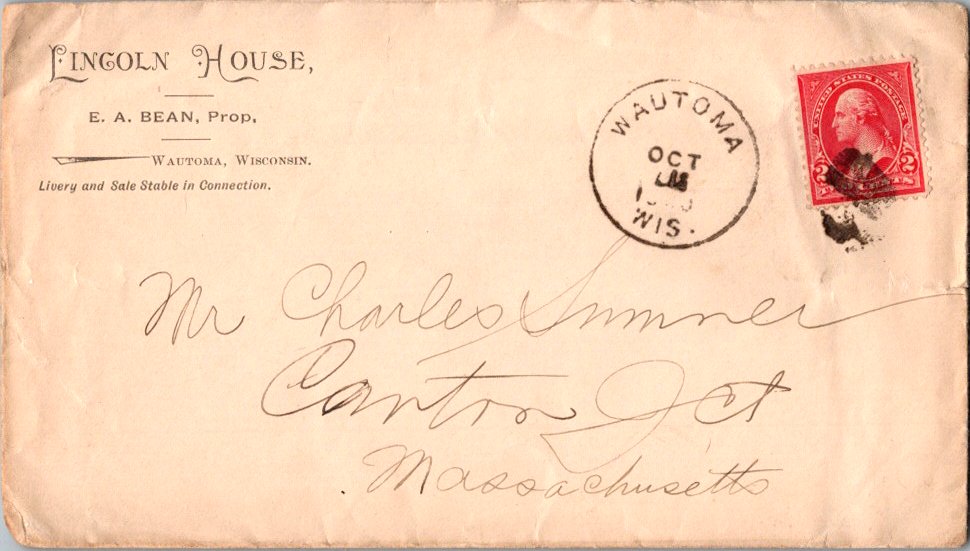 LINCOLN HOUSE,
E. A. BEAN, Prop.
WAUTOMA, WISCONSIN.
Livery and Sale Stable in Connection.
WAUTOMA
OCT
WIS.
UNITED STATES POSTAGE
2 2
Mr Charles Sumner
Canton Jct
Massachusetts